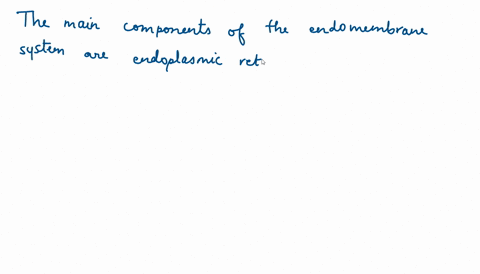 The main components of the endomembrane
system are endoplasmic ret